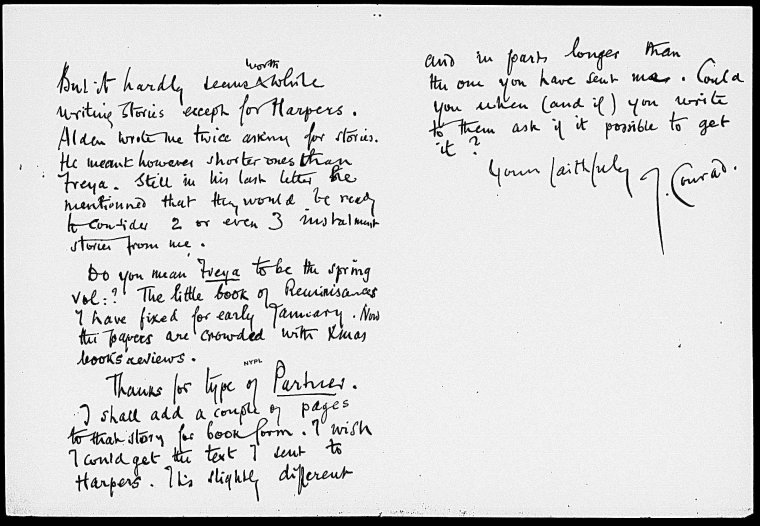 But it hardly seems worth while
writing stories except for Harpers.
Alden wrote me twice asking for stories.
He meant however shorter ones than
Freya. Still in his last letter he
mentionned that they would be ready
to consider 2 or even 3 instalment
stories from me.
Do you mean Freya to be the spring
vol:? The little book of Reminisances
I have fixed for early January. Now
the papers are crowded with Xmas
books reviews.
NYPL
Thanks for type of Partner.
I shall add a couple of pages
to that story for book form. I wish
I could get the text I sent to
Harpers. It is slightly different
and in parts longer than
the one you have sent me. Could
you when (and if) you write
to them ask if it possible to get
it?
Yours faithfully J. Conrad.